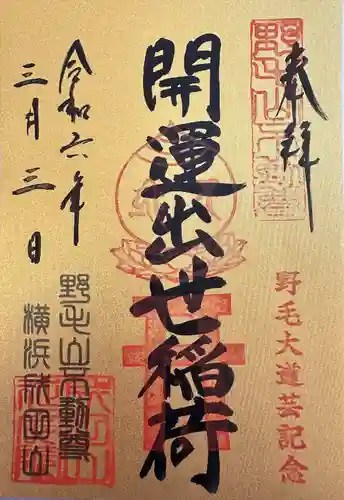 奉拝
野毛大道芸記念
開運出世稲荷
令和六年
三月三日
野毛山不動尊
横浜成田山